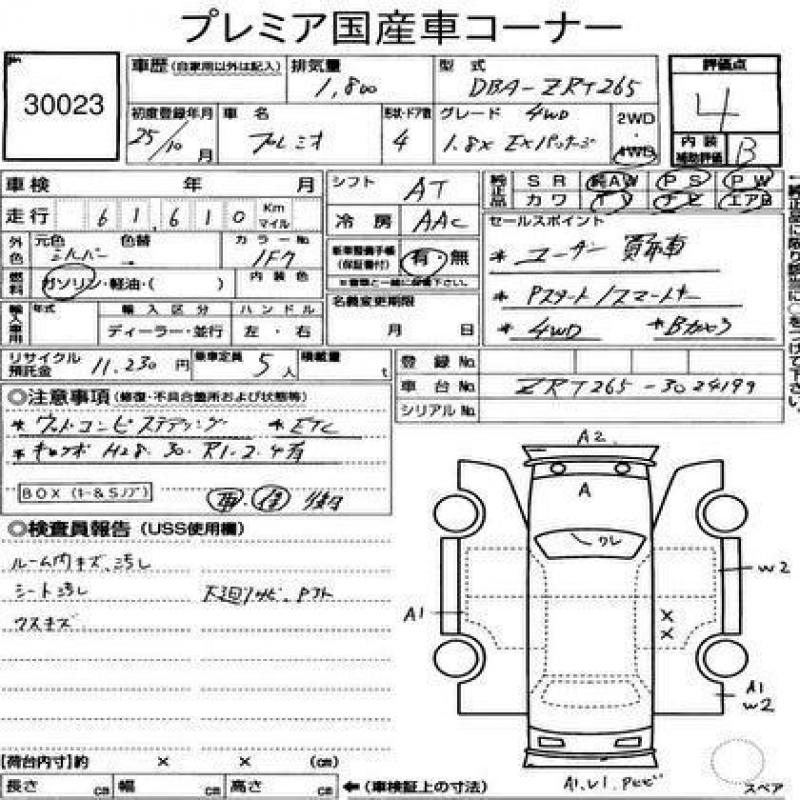 プレミア国産車コーナー
30023
車歴 (自家用以外は記入) 排気量 1,800 型式 DBA-ZRT265 評価点 4
初度登録年月 25/10 月 車名 プレミオ 形状・ドア数 4 グレード 4WD 1.8X EXパッケージ 2WD・4WD 内装補助評価 B
車検 年 月 シフト AT 純正品 SR 純AW PS PW
カワ TV ナビ エアB
走行 61,610 Km マイル 冷房 AAC セールスポイント
外色 元色 シルバー 色替 カラーNo 1F7 新車整備手帳(保証書付) 有・無 * ユーザー買取車
※書類と一緒に保管下さい。
燃料 ガソリン・軽油・( ) 内装色 名義変更期限 月 日 * Pスタート/スマートキー
輸入車用 年式 輸入区分 ディーラー・並行 ハンドル 左・右 * 4WD * Bカメラ
リサイクル預託金 11,230 円 乗車定員 5人 積載量 t 登録No.
車台No. ZRT265-3024199
シリアルNo.
←純正品に限り該当に○をつけて下さい。
◎注意事項 (修復・不具合箇所および状態等)
* ウッドコンビステアリング * ETC
* キロク H28.30.R1.2.4有
BOX (キー&Sノブ)
◎検査員報告 (USS使用欄)
ルーム内キズ、汚れ
シート汚れ 下廻りサビ、Pフト
ウスキズ
A2
A
ワレ
W2
A1
×
×
A1
W2
A1.U1.
スペア
[荷台内寸]約 × × (cm)
長さ cm 幅 cm 高さ cm ← (車検証上の寸法)